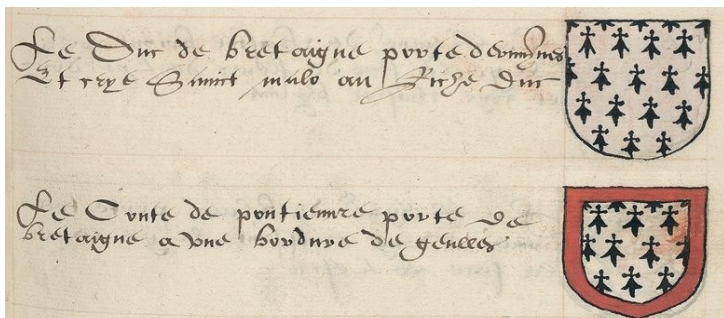 Le Duc de bretaigne porte dermines
Et crye Sainct malo au Riche duc
Le Conte de pontieuvre porte de
bretaigne a vne bordure de geulles